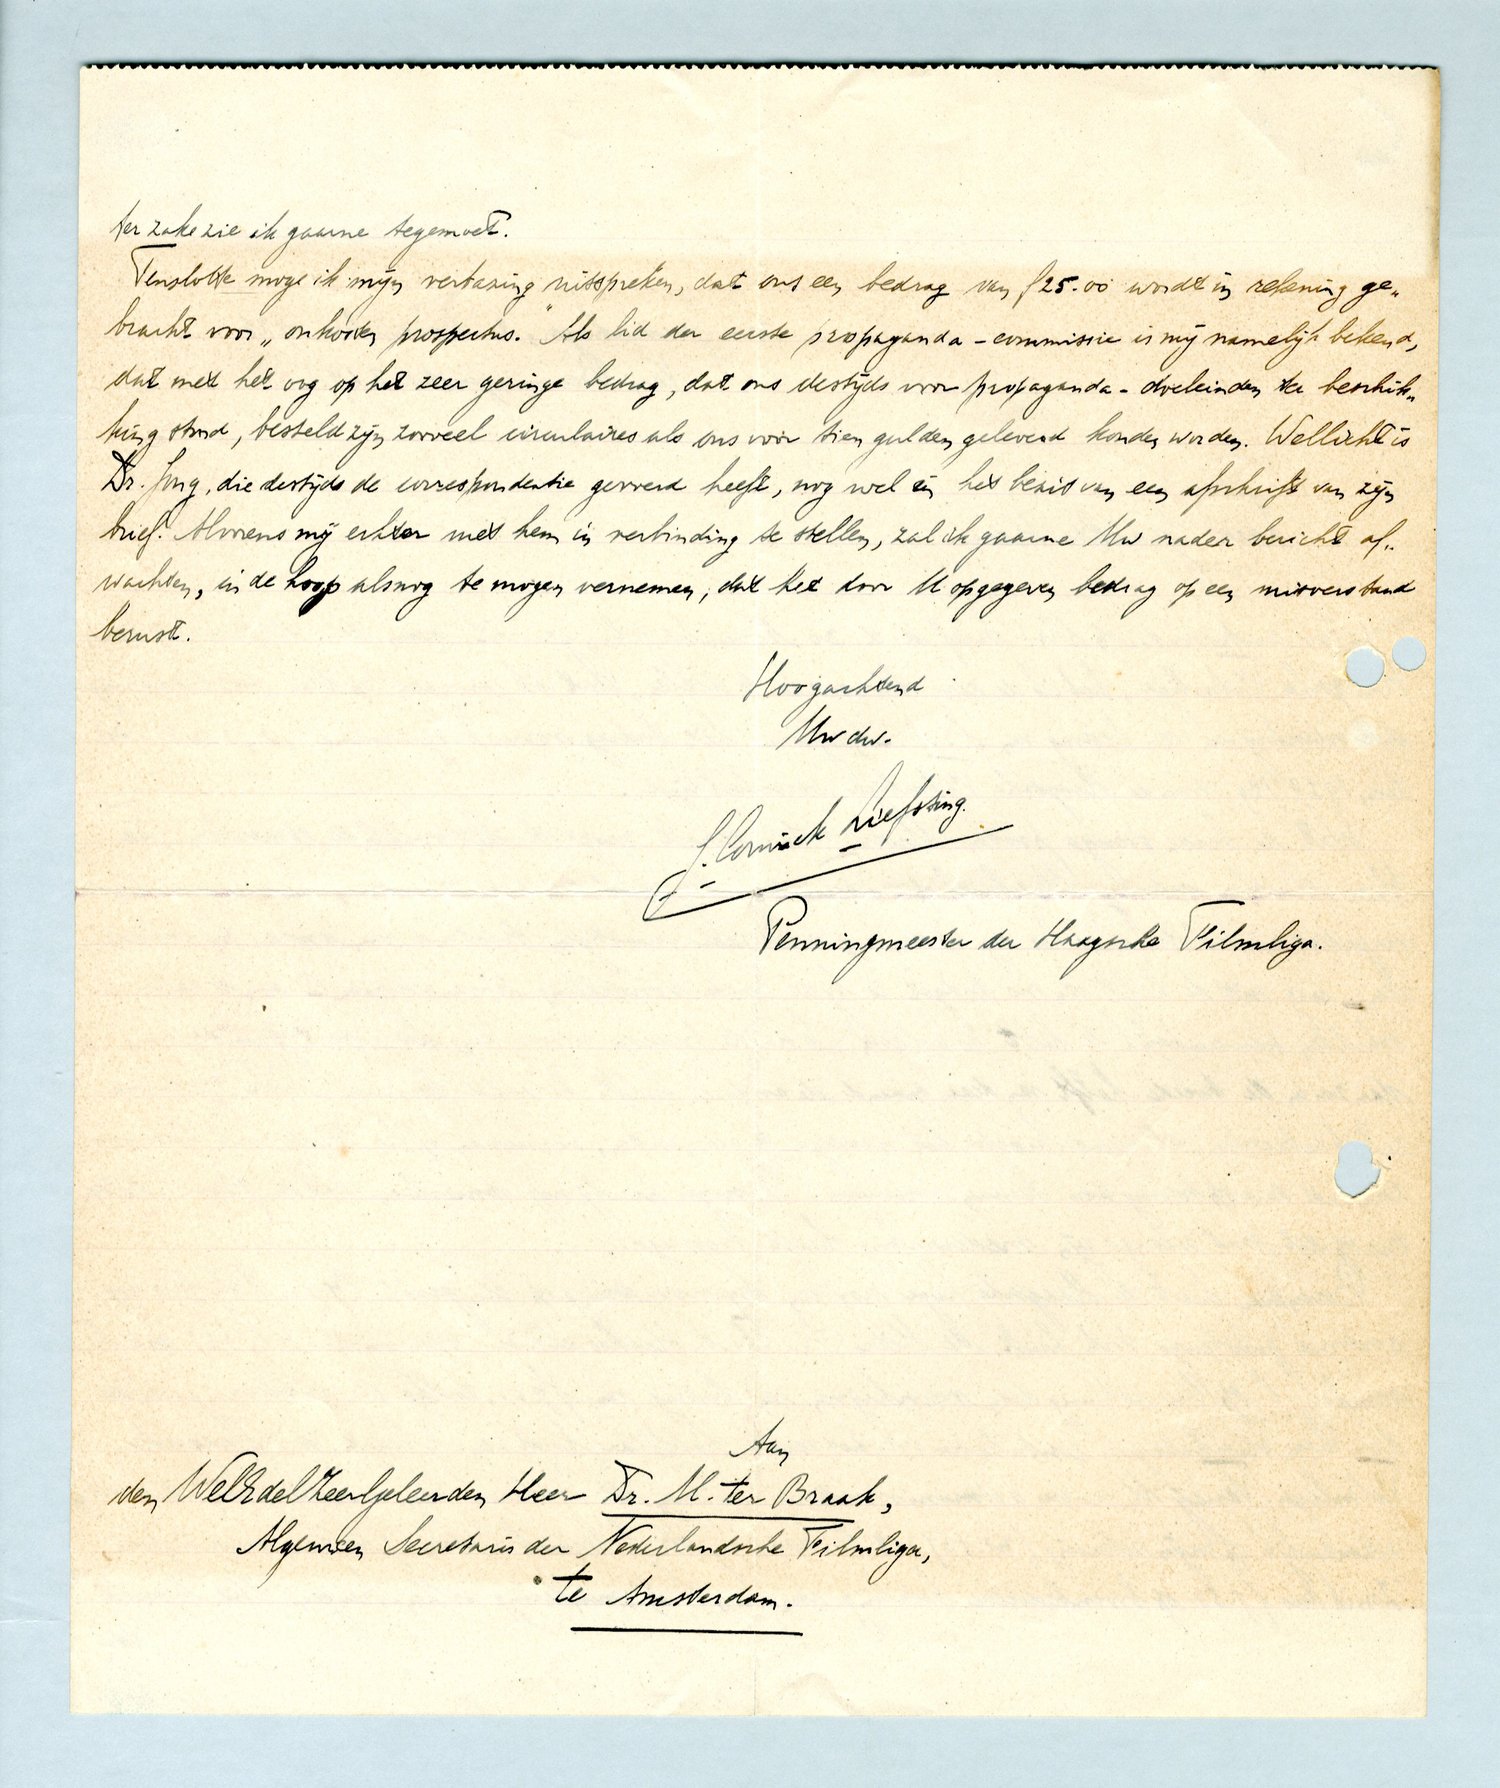 ter zake zie ik gaarne tegemoet.
Tenslotte moge ik mijn verbazing uitspreken, dat ons een bedrag van ƒ25.00 wordt in rekening ge„
bracht voor „onkosten prospectus." Als lid der eerste propaganda-commissie is mij namelijk bekend,
dat met het oog op het zeer geringe bedrag, dat ons destijds voor propaganda-doeleinden ter beschik„
king stond, besteld zijn zooveel circulaires als ons voor tien gulden geleverd konden worden. Wellicht is
Dr. Jong, die destijds de correspondentie gevoerd heeft, nog wel in het bezit van een afschrift van zijn
brief. Alvorens mij echter met hem in verbinding te stellen, zal ik gaarne Uw nader bericht af„
wachten, in de hoop alsnog te mogen vernemen, dat het door U opgegeven bedrag op een misverstand
berust.
Hoogachtend
Uw dw.
Liefsting.
Penningmeester der Haagsche Filmliga.
Aan
den WelEdelZeerGeleerden Heer Dr. M. ter Braak,
Algemeen Secretaris der Nederlandsche Filmliga,
te Amsterdam.